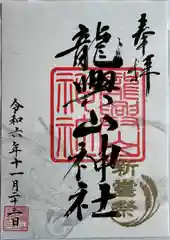 奉拝
龍興山神社
新嘗祭
令和六年十一月二十三日